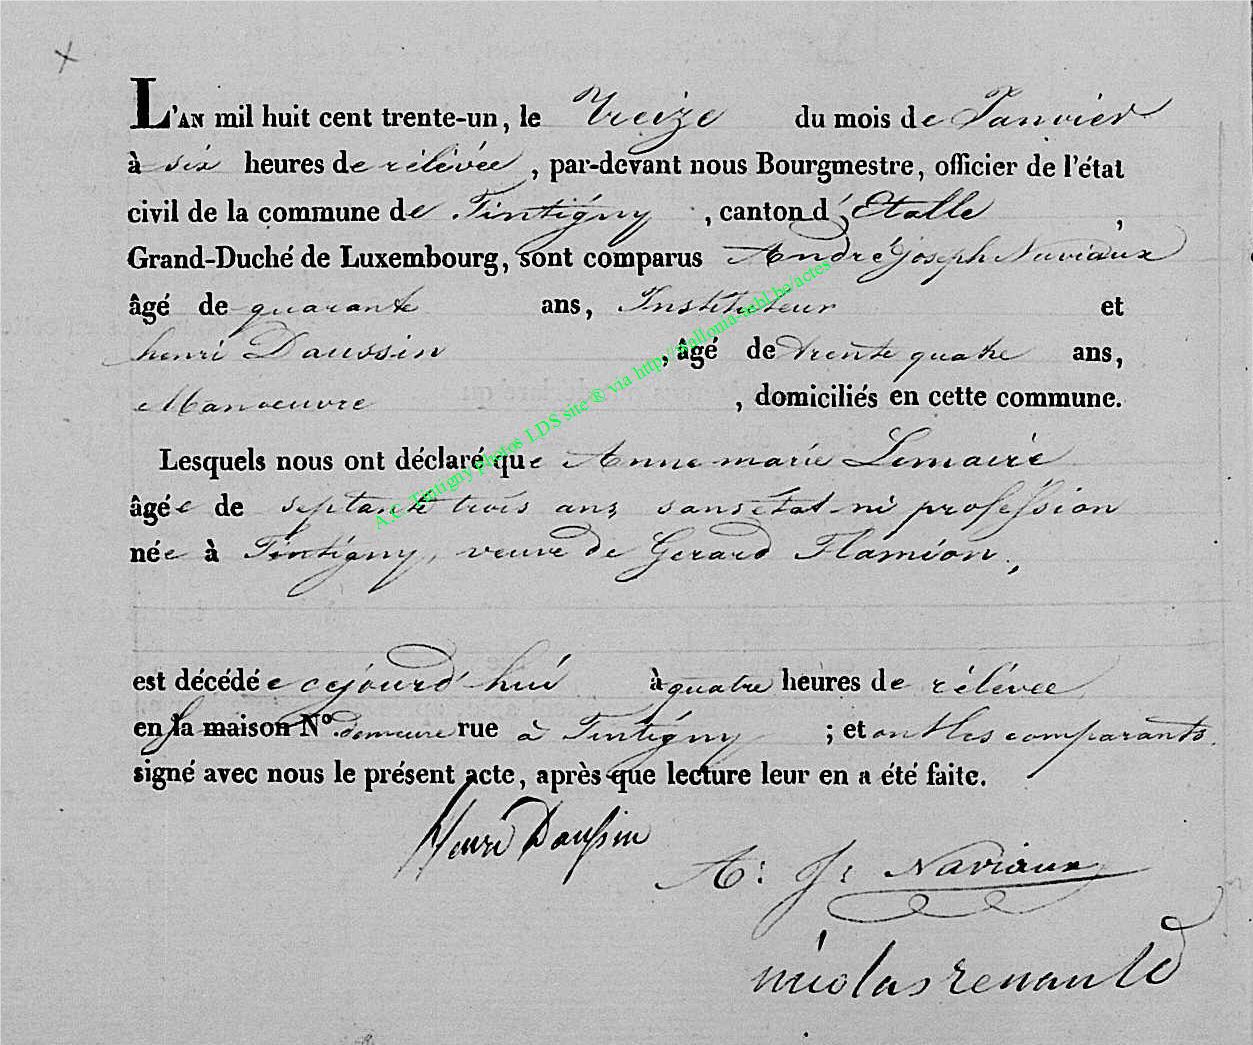 L'AN mil huit cent trente-un, le Treize du mois de Janvier
à six heures de rélévée, par-devant nous Bourgmestre, officier de l'état
civil de la commune de Tintigny, canton d'Etalle,
Grand-Duché de Luxembourg, sont comparus André Joseph Naviaux
âgé de quarante ans, Instituteur et
henri Daussin, âgé de trente quatre ans,
Manoeuvre, domiciliés en cette commune.
Lesquels nous ont déclaré que Anne marie Lemaire
âgée de septante trois ans, sans état ni profession
née à Tintigny, veuve de Gerard Flamion,
est décédée cejourd'hui à quatre heures de rélévée
en sa maison N° demeure rue à Tintigny ; et ont les comparants
signé avec nous le présent acte, après que lecture leur en a été faite.
Henri Daussin
A: J: Naviaux
nicolas renauld
A.C. Tintigny photos LDS site ® via http://wallonia-asbl.be/actes